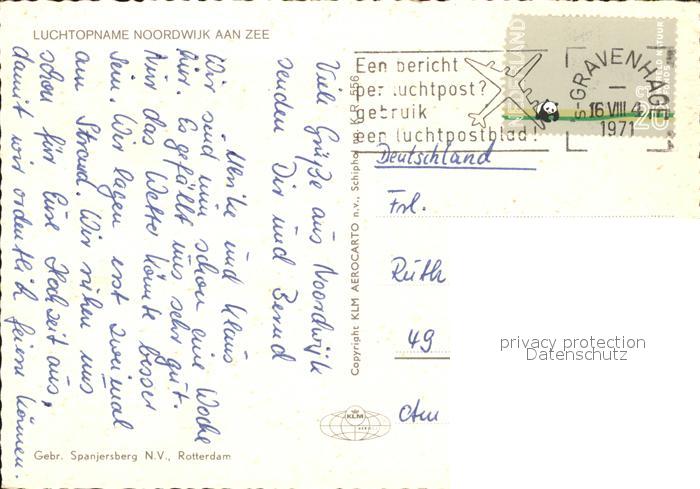 LUCHTOPNAME NOORDWIJK AAN ZEE
Viele Grüße aus Noordwijk
senden Dir und Bernd
Ulrike und Klaus
Wir sind nun schon eine Woche
hier. Es gefällt uns sehr gut.
Nur das Wetter könnte besser
sein. Wir lagen erst zweimal
am Strand. Wir ruhen uns
schon für Eure Hochzeit aus,
damit wir ordentlich feiern können.
Gebr. Spanjersberg N.V., Rotterdam
Copyright KLM AEROCARTO n.v., Schiphol
KLM
AERO
Een bericht
per luchtpost?
gebruik
een luchtpostblad!
's-GRAVENHAGE
16 VIII 4
1971
NEDERLAND
Deutschland
Frl.
Ruth
49
Am
privacy protection
Datenschutz